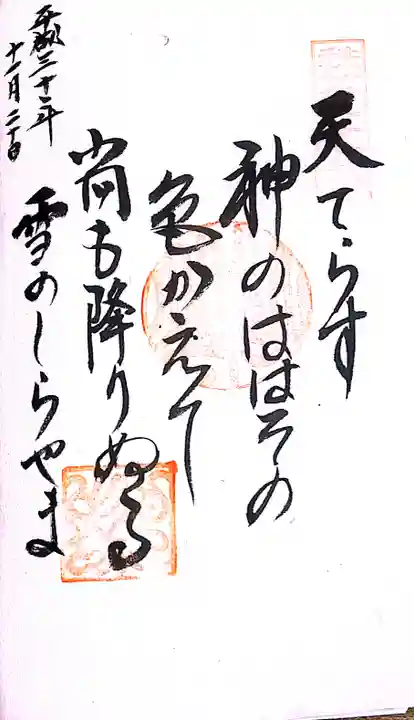 天てらす
神のははその
色かえて
尚も降りぬる
雪のしらやま
平成三十年
十一月二十日